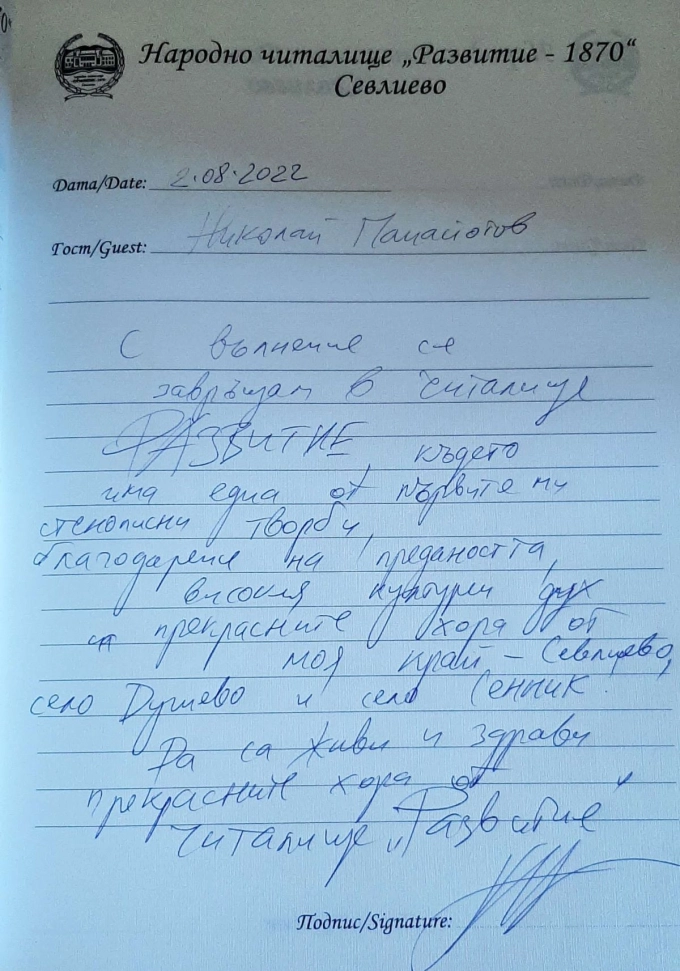 Народно читалище „Развитие - 1870“
Севлиево
Дата/Date: 2.08.2022
Гост/Guest: Николай Панайотов
С вълнение се
завръщам в читалище
РАЗВИТИЕ, където
има една от първите ми
стенописни творби,
благодарение на предаността,
високия културен дух
и прекрасните хора от
моя край – Севлиево,
село Душево и село Сенник.
Да са живи и здрави
прекрасните хора от
Читалище „Развитие“
Подпис/Signature: